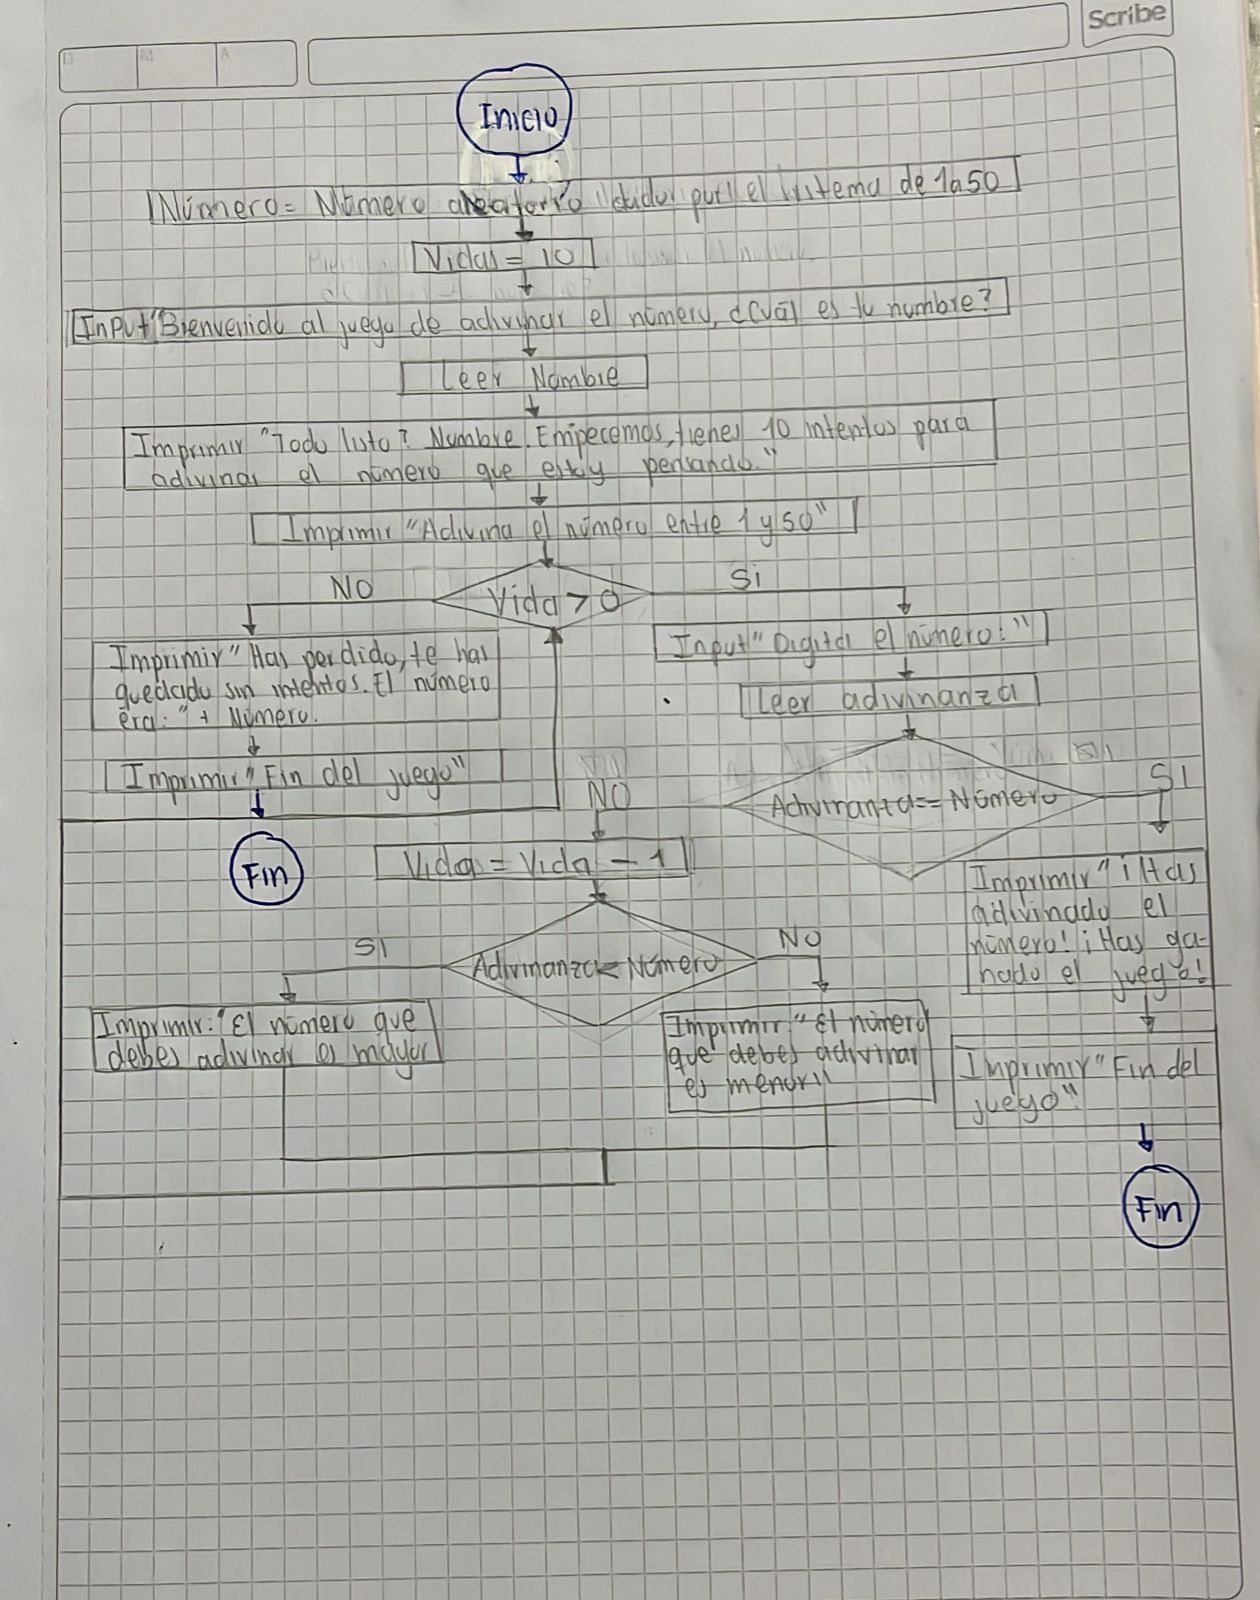 Scribe
D M A
Inicio
Número= Número aleatorio dador por el sistema de 1a50
Vidas = 10
Input "Bienvenido al juego de adivinar el número, ¿Cuál es tu nombre?
Leer Nombre
Imprimir "Todo listo? Nombre. Empecemos, tienes 10 intentos para
adivinar el número que estoy pensando."
Imprimir "Adivina el número entre 1 y 50"
NO Vida > 0 Si
Imprimir "Has perdido, te has
quedado sin intentos. El número
era: " + Número.
Imprimir "Fin del juego"
Fin
Input "Digita el número: "
Leer adivinanza
NO Adivinanza == Número SI
Vida = Vida - 1
SI Adivinanza < Número NO
Imprimir: "El número que
debes adivinar es mayor
Imprimir: "El número
que debes adivinar
es menor"
Imprimir "¡Has
adivinado el
número! ¡Has ga-
nado el juego!
Imprimir "Fin del
juego"
Fin